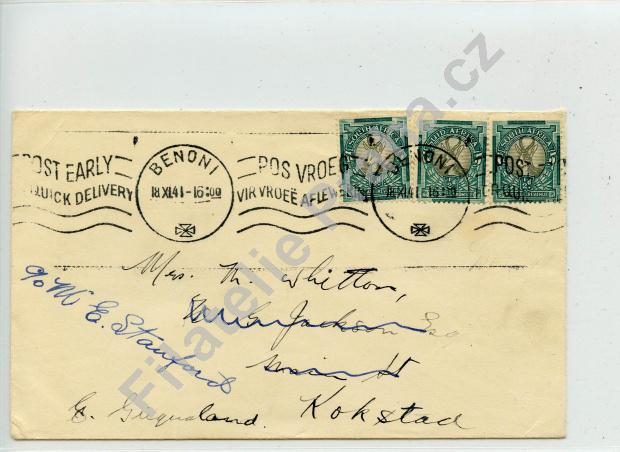 SOUTH AFRICA
SOUTH AFRICA
SOUTH AFRICA
POST EARLY
QUICK DELIVERY
BENONI
18 XI 41 - 16:00
POS VROEË
VIR VROEË AFLEWERING
BENONI
18 XI 41 - 16:00
POST
Mrs. M. Whitton,
c/o Mr E. Stanford
G. Jackson Esq
Main St
E. Griqualand. Kokstad
Filatelie Praha.cz